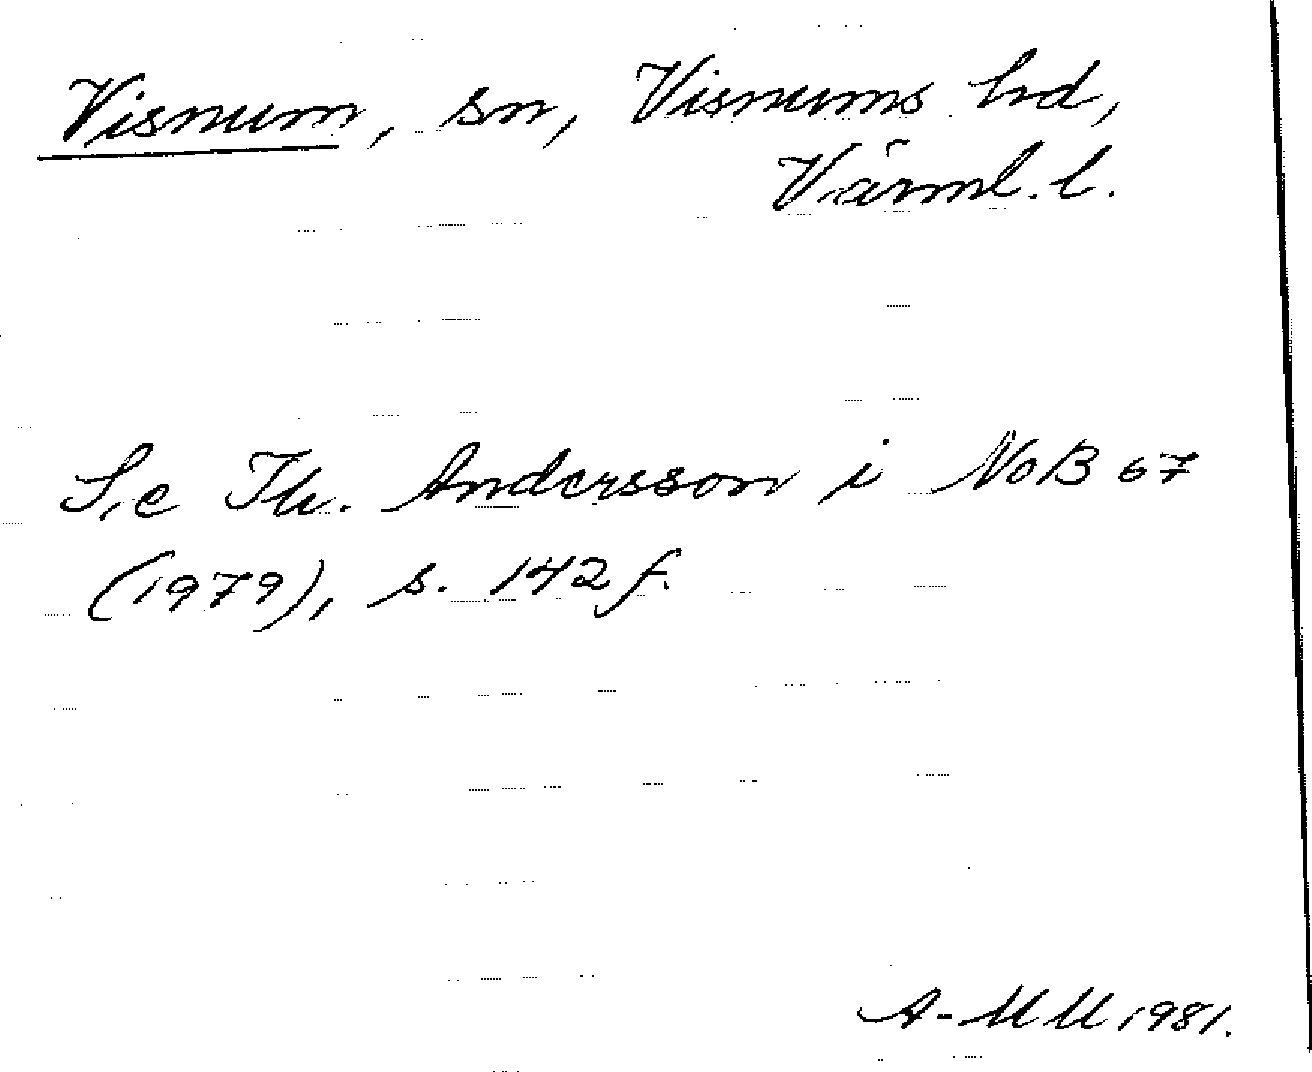 Visnum, sn, Visnums hd,
Värml. l.
Se Th. Andersson i NoB 67
(1979), s. 142 f.
A-MM 1981.